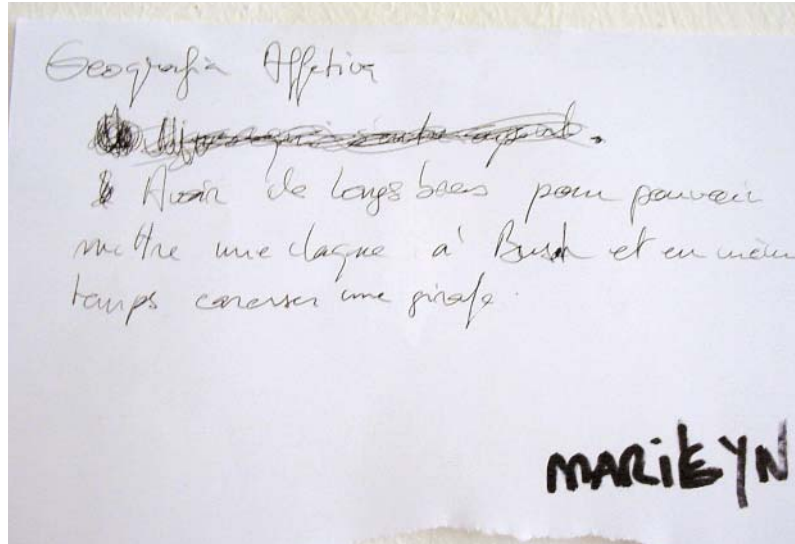 Geografia Affetiva
Avoir de longs bras pour pouvoir
mettre une claque à Bush et en mêm
temps caresser une girafe.
MARiLYN